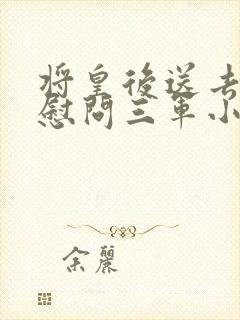 將皇後送去
慰問三軍小
余麗